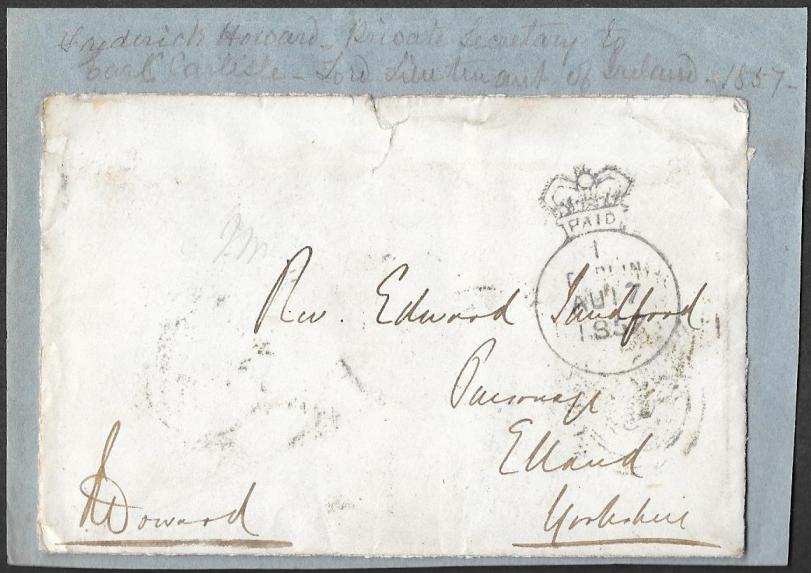 Frederick Howard - Private Secretary to
Earl Carlisle - Lord Lieutenant of Ireland - 1857 -
PAID
1
DUBLIN
AU 17
185
Rev. Edward Sandford
Parsonage
Elland
Yorkshire
Howard